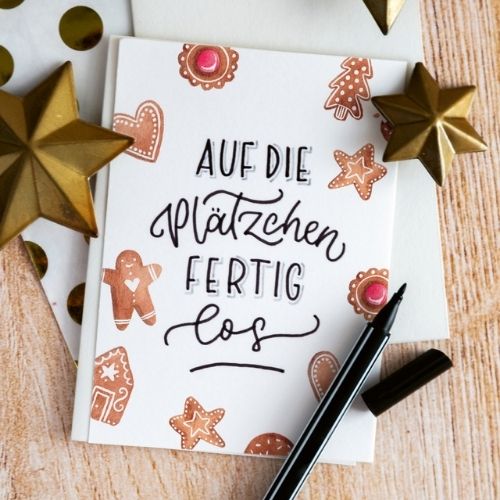 AUF DIE
Plätzchen
FERTIG
los